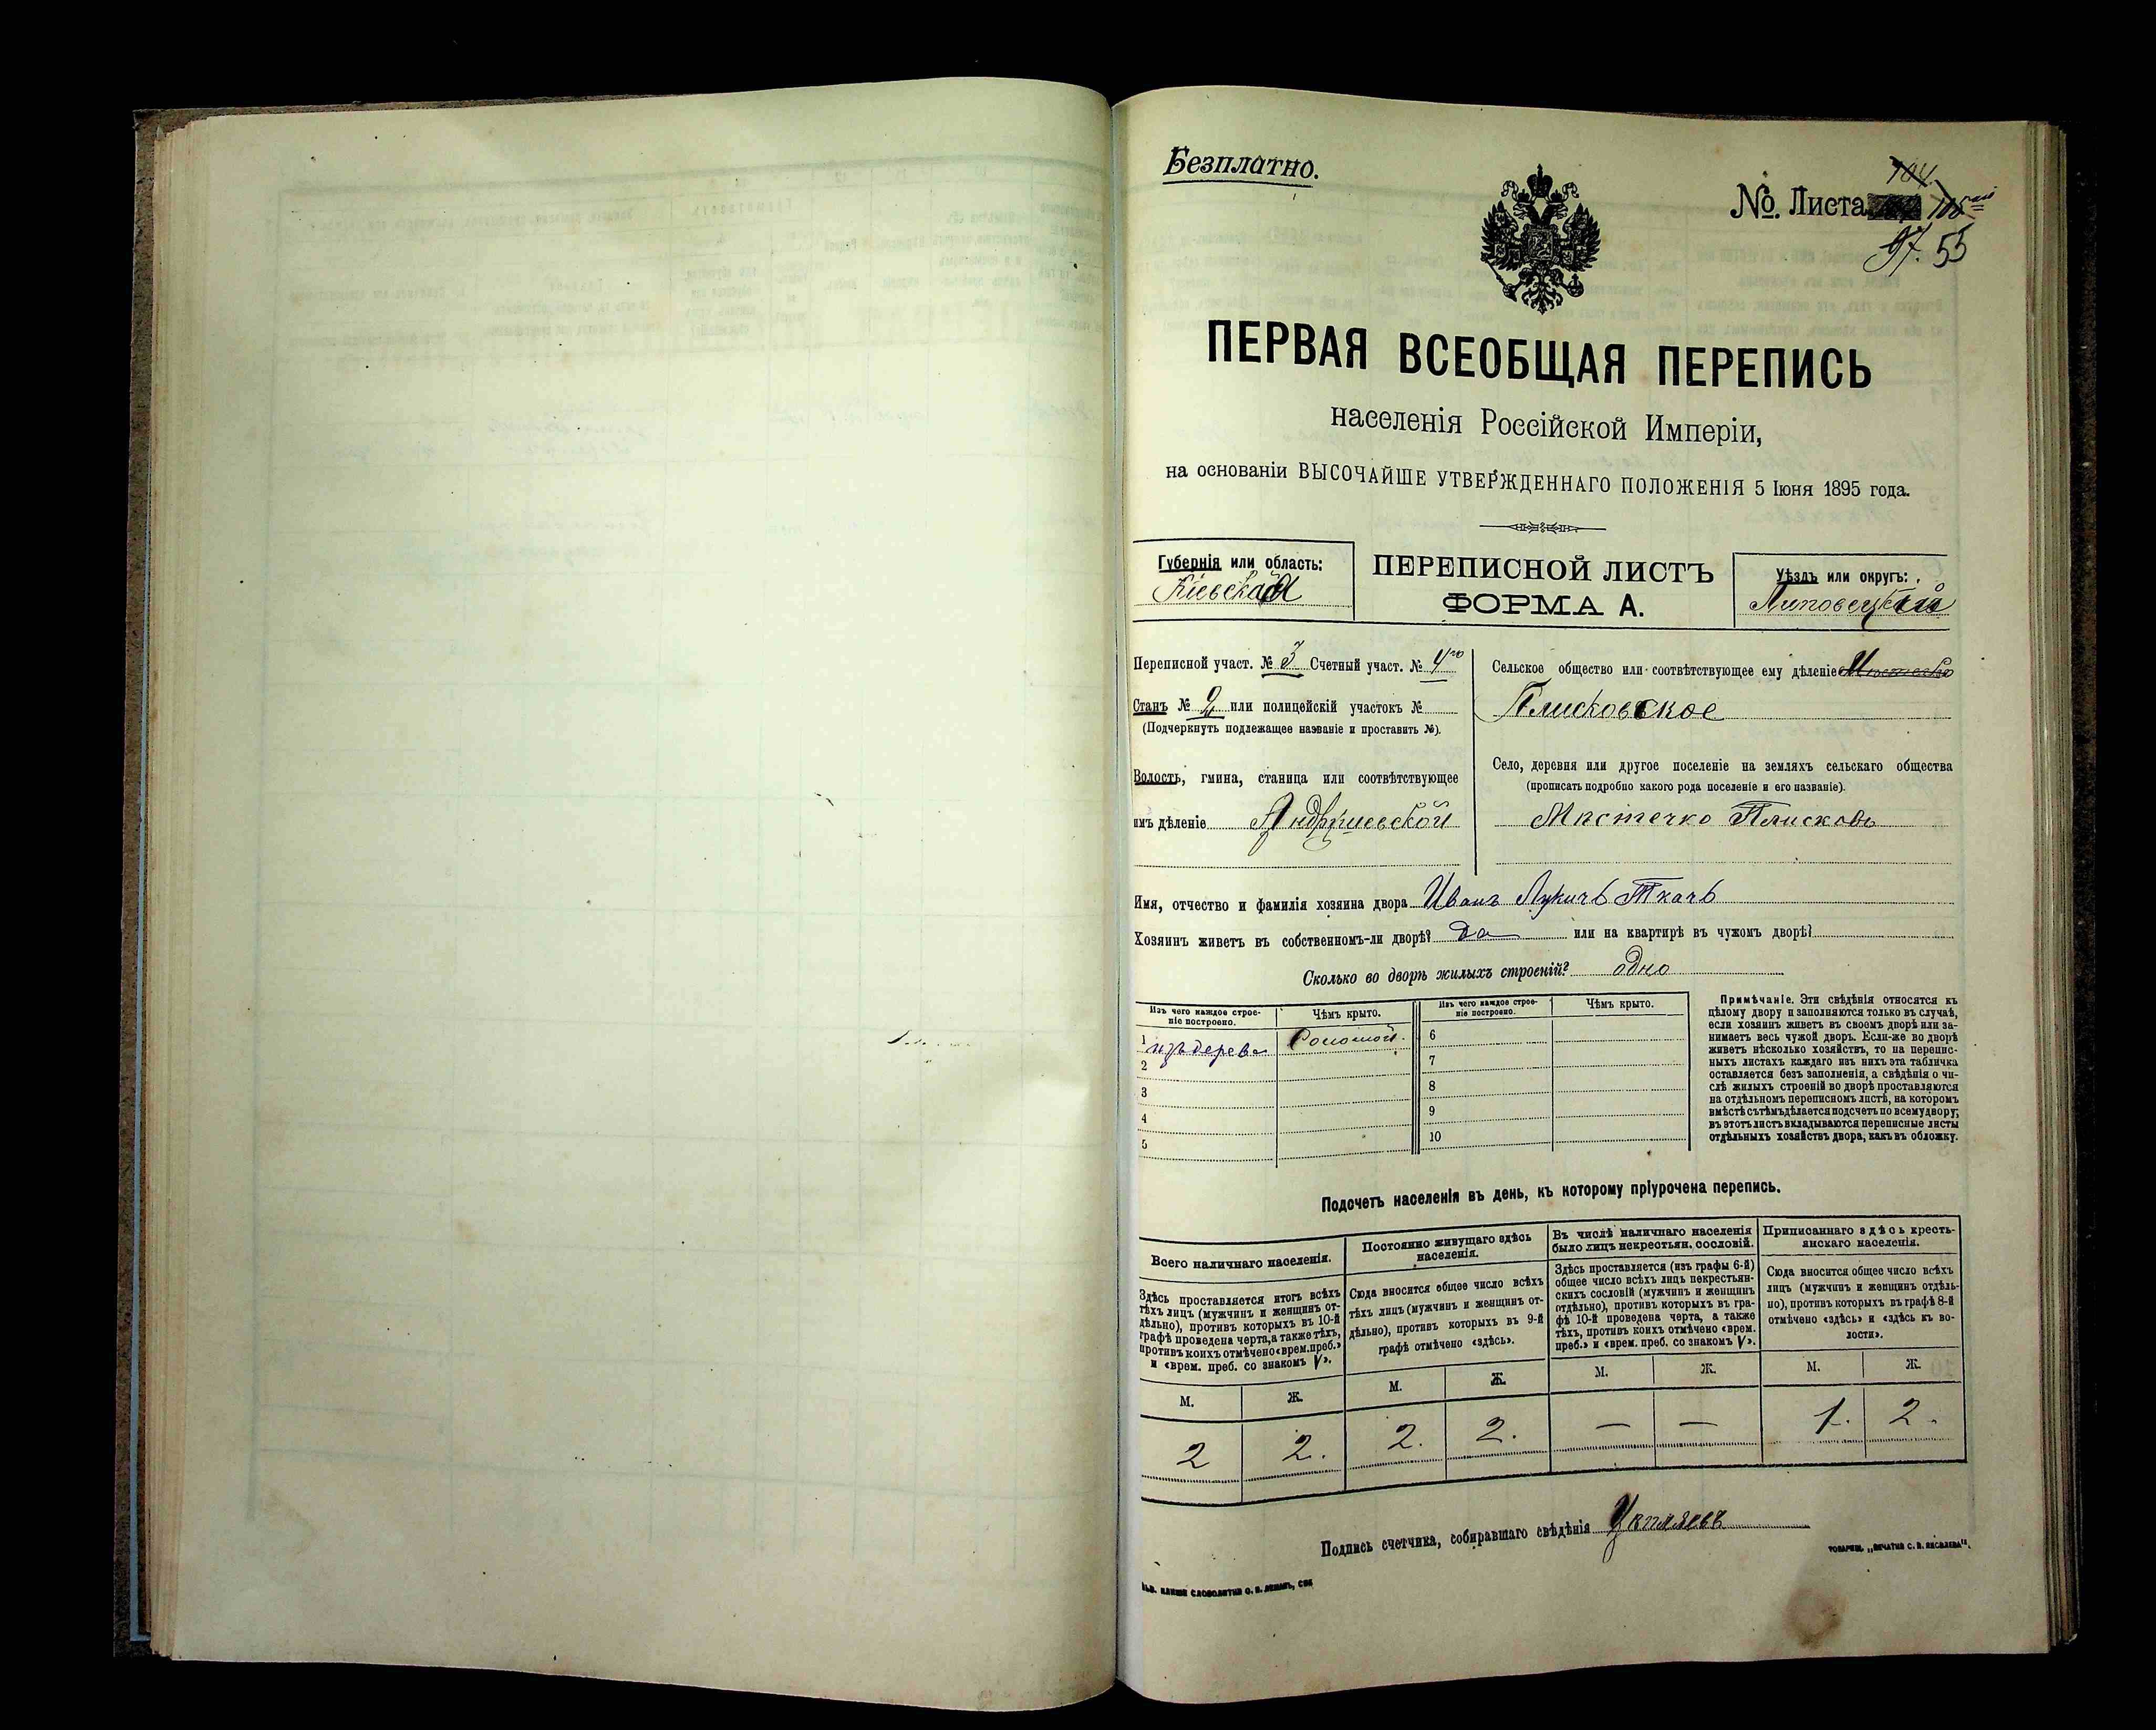 Безплатно.
№. Листа 104. 105ый
97. 55
ПЕРВАЯ ВСЕОБЩАЯ ПЕРЕПИСЬ
населенія Россійской Имперіи,
на основаніи ВЫСОЧАЙШЕ УТВЕРЖДЕННАГО ПОЛОЖЕНІЯ 5 Іюня 1895 года.
Губернія или область:
Кіевская
ПЕРЕПИСНОЙ ЛИСТЪ
ФОРМА А.
Уѣздъ или округъ:
Липовецкій
Переписной участ. № 3 Счетный участ. № 4го
Станъ № 2 или полицейскій участокъ №
(Подчеркнуть подлежащее названіе и проставить №).
Волость, гмина, станица или соотвѣтствующее
имъ дѣленіе Андрушевской
Сельское общество или соотвѣтствующее ему дѣленіе
Плисковское
Село, деревня или другое поселеніе на земляхъ сельскаго общества
(прописать подробно какого рода поселеніе и его названіе).
Мѣстечко Плисковъ
Имя, отчество и фамилія хозяина двора Иванъ Лукичъ Ткачъ
Хозяинъ живетъ въ собственномъ-ли дворѣ? да или на квартирѣ въ чужомъ дворѣ?
Сколько во дворѣ жилыхъ строеній? одно
Изъ чего каждое строе-
ніе построено.
Чѣмъ крыто.
Изъ чего каждое строе-
ніе построено.
Чѣмъ крыто.
1 изъ дерева Соломой. 6
2 7
3 8
4 9
5 10
Примѣчаніе. Эти свѣдѣнія относятся къ
цѣлому двору и заполняются только въ случаѣ,
если хозяинъ живетъ въ своемъ дворѣ или за-
нимаетъ весь чужой дворъ. Если-же во дворѣ
живетъ нѣсколько хозяйствъ, то на перепис-
ныхъ листахъ каждаго изъ нихъ эта табличка
оставляется безъ заполненія, а свѣдѣнія о чи-
слѣ жилыхъ строеній во дворѣ проставляются
на отдѣльномъ переписномъ листѣ, на которомъ
вмѣстѣ съ тѣмъ дѣлается подсчетъ по всему двору;
въ этотъ листъ вкладываются переписные листы
отдѣльныхъ хозяйствъ двора, какъ въ обложку.
Подсчетъ населенія въ день, къ которому пріурочена перепись.
Всего наличнаго населенія.
Здѣсь проставляется итогъ всѣхъ
тѣхъ лицъ (мужчинъ и женщинъ от-
дѣльно), противъ которыхъ въ 10-й
графѣ проведена черта, а также тѣхъ,
противъ коихъ отмѣчено «врем. преб.»
и «врем. преб. со знакомъ V».
Постоянно живущаго здѣсь
населенія.
Сюда вносится общее число всѣхъ
тѣхъ лицъ (мужчинъ и женщинъ от-
дѣльно), противъ которыхъ въ 9-й
графѣ отмѣчено «здѣсь».
Въ числѣ наличнаго населенія
было лицъ некрестьян. сословій.
Здѣсь проставляется (изъ графы 6-й)
общее число всѣхъ лицъ некрестьян-
скихъ сословій (мужчинъ и женщинъ
отдѣльно), противъ которыхъ въ гра-
фѣ 10-й проведена черта, а также
тѣхъ, противъ коихъ отмѣчено «врем.
преб.» и «врем. преб. со знакомъ V».
Приписаннаго здѣсь кресть-
янскаго населенія.
Сюда вносится общее число всѣхъ
лицъ (мужчинъ и женщинъ отдѣль-
но), противъ которыхъ въ графѣ 8-й
отмѣчено «здѣсь» и «здѣсь къ во-
лости».
М. Ж. М. Ж. М. Ж. М. Ж.
2 2. 2. 2. — — 1. 2.
Подпись счетчика, собиравшаго свѣдѣнія
ТОВАРИЩ. „ПЕЧАТНЯ С. П. ЯКОВЛЕВА".
СЛОВОЛИТНЯ О. И. ЛЕМАНЪ, СПБ